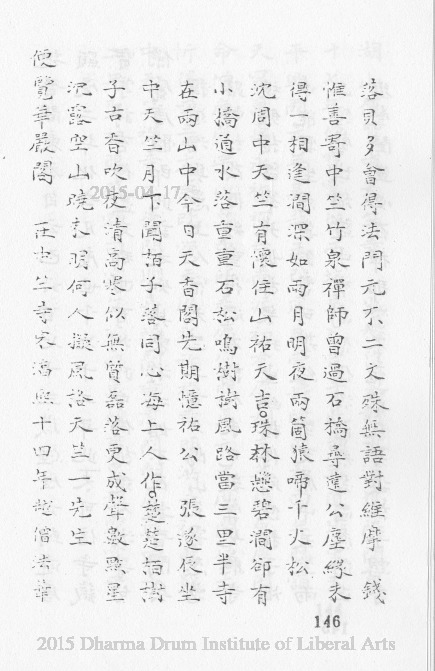 落貝多會得法門元不二文殊無語對維摩錢
惟善寄中竺竹泉禪師曾過石橋尋遠公塵緣未
得一相逢澗深如雨月明夜兩箇猿啼十火松
沈周中天竺有懷住山祐天吉珠林戀碧澗卻有
小橋通水落重重石松鳴樹樹風路當三里半寺
在兩山中今日天香閣先期憶祐公 張遂辰坐
中天竺月下聞栢子落同心海上人作楚楚栢樹
子古香吹夜清高寒似無質磊落更成聲數點星
河露空山曉未明何人擬風詻天竺一先生
便覽華嚴閣 在中竺寺 十四年 僧法華
146
2015-04-17
2015 Dharma Drum Institute of Liberal Arts